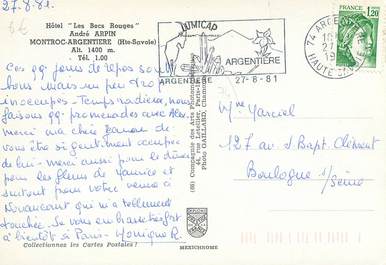 27.8.81.
Hôtel "Les Becs Rouges"
André ARPIN
MONTROC-ARGENTIERE (Hte-Savoie)
Alt. 1400 m.
Tél. 1.00
Ces qq. jours de repos sont
bons mais un peu trop
inoccupés - Temps radieux, nous
faisons qq. promenades avec
merci ma chère
vous être si gentiment occupée
de lui - merci aussi pour le
pour les fleurs de Maurice et
surtout pour votre venue à
qui m'a tellement
touchée. Je vous embrasse très fort
à bientôt à Paris - Monique R.
Collectionnez les Cartes Postales !
MEXICHROME
Photo GAILLARD, Chamonix
UNICAP
ARGENTIERE
ARGENTIÈRE
27-8-81
74 ARGENTIERE
27
19
HAUTE SAVOIE
FRANCE
1,20
Mme Marcel
127 av. J. Bapt. Clément
Boulogne s/
Seine